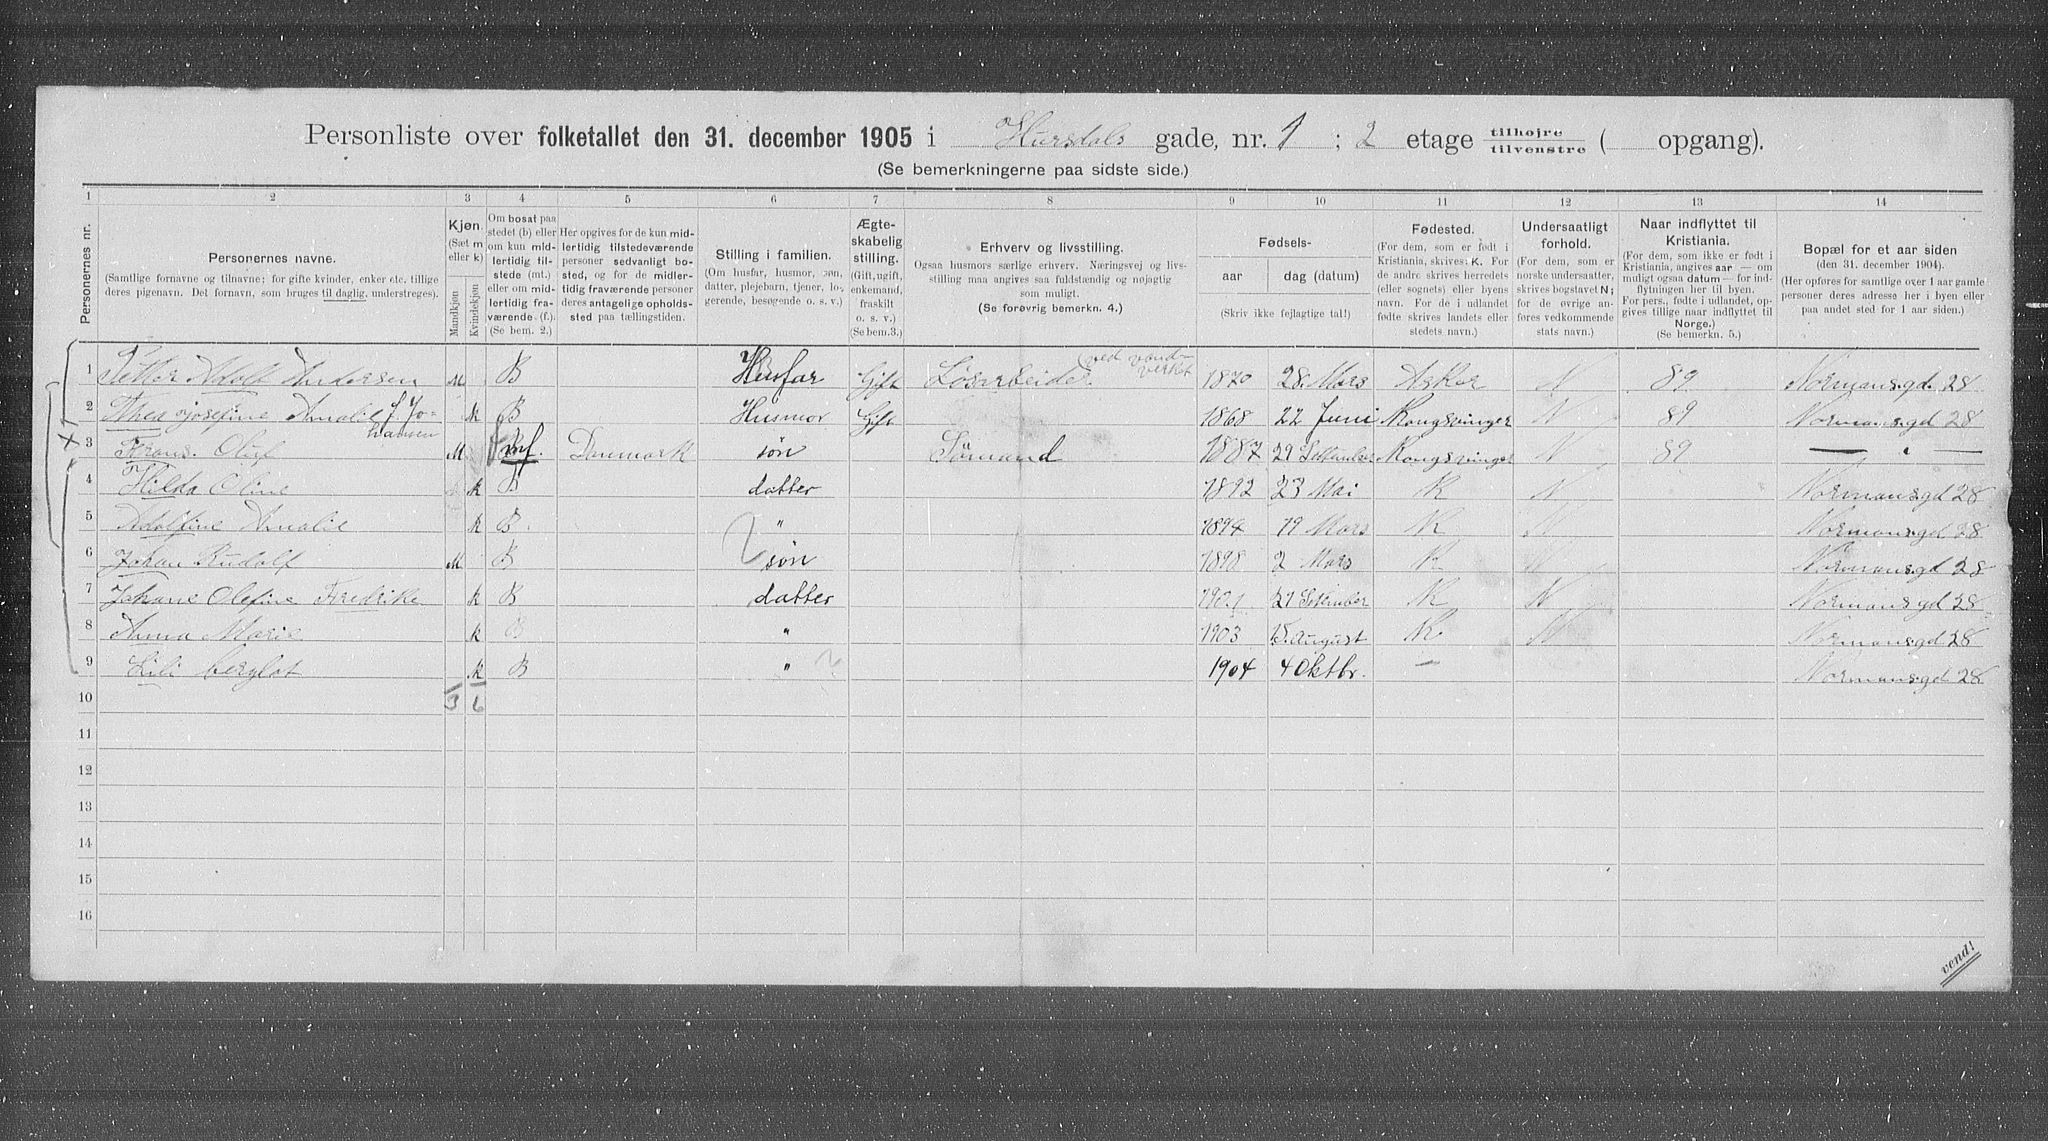 Personliste over folketallet den 31. december 1905 i Hursdals gade, nr. 1 ; 2 etage tilhøjre tilvenstre ( opgang).
(Se bemerkningerne paa sidste side.)
1 2 3 4 5 6 7 8 9 10 11 12 13 14
Personernes nr.
Personernes navne.
(Samtlige fornavne og tilnavne; for gifte kvinder, enker etc. tillige
deres pigenavn. Det fornavn, som bruges til daglig, understreges).
Kjøn.
(Sæt m
eller k)
Mandkjøn
Kvindekjøn
Om bosat paa
stedet (b) eller
om kun mid-
lertidig til-
stede (mt.)
eller om mid-
lertidig fra-
værende (f.).
(Se bem. 2.)
Her opgives for de kun mid-
lertidig tilstedeværende
personer sedvanlig bo-
sted, og for de midler-
tidig fraværende personer
deres antagelige opholds-
sted paa tællingstiden.
Stilling i familien.
(Om husfar, husmor, søn,
datter, plejebarn, tjener, lo-
gerende, besøgende o. s. v.)
Ægte-
skabelig
stilling.
(Gift, ugift,
enkemand,
fraskilt
o. s. v.)
(Se bem.3.)
Erhverv og livsstilling.
Ogsaa husmors særlige erhverv. Næringsvej og livs-
stilling maa angives saa fuldstændig og nøjagtig
som muligt.
(Se forøvrig bemerkn. 4.)
Fødsels-
aar
dag (datum)
(Skriv ikke fejlagtige tal!)
Fødested.
(For dem, som er født i
Kristiania, skrives: K. For
de andre skrives herredets
(eller sognets) eller byens
navn. For de i udlandet
fødte skrives landets eller
stedets navn.)
Undersaatligt
forhold.
(For dem, som er
norske undersaatter,
skrives bogstavet N;
for de øvrige an-
føres vedkommende
stats navn.)
Naar indflyttet til
Kristiania.
(For dem, som ikke er født i
Kristiania, angives aar — om
muligt ogsaa datum — for ind-
flytningen her til byen.
For pers., fødte i udlandet, op-
gives tillige naar indflyttet til
Norge.)
(Se bemerkn. 5.)
Bopæl for et aar siden
(den 31. december 1904).
(Her opføres for samtlige over 1 aar gamle
personer deres adresse her i byen eller
paa andet sted for 1 aar siden.)
1 Petter Adolf Andersen M B Husfar Gift Løsarbeider ved vand-verket 1870 28 Mars Asker N 89 Normansgd. 28
2 Thea Josefine Amalie f. Johansen k B Husmor Gift 1868 22 Juni Kongsvinger N 89 Normansgd 28
3 Frans. Oluf M Danmark søn Sømand 1887 29 Kongsvinger N 89 — " —
4 Hilda Oline k B datter 1892 23 Mai K N Normansgd 28
5 Adolfine Amalie k B " 1894 19 Mars K N Normansgd 28
6 Johan Rudolf M B søn 1898 2 Mars K N Normansgd 28
7 Johane Olefine Fredrikke k B datter 1901 21 K N Normansgd 28
8 Anna Marie k B " 1903 15 August K N Normansgd 28
9 Lili bergliot k B " 1904 4 Oktbr. — Normansgd 28
10 3 6
11
12
13
14
15
16
X1
vend!